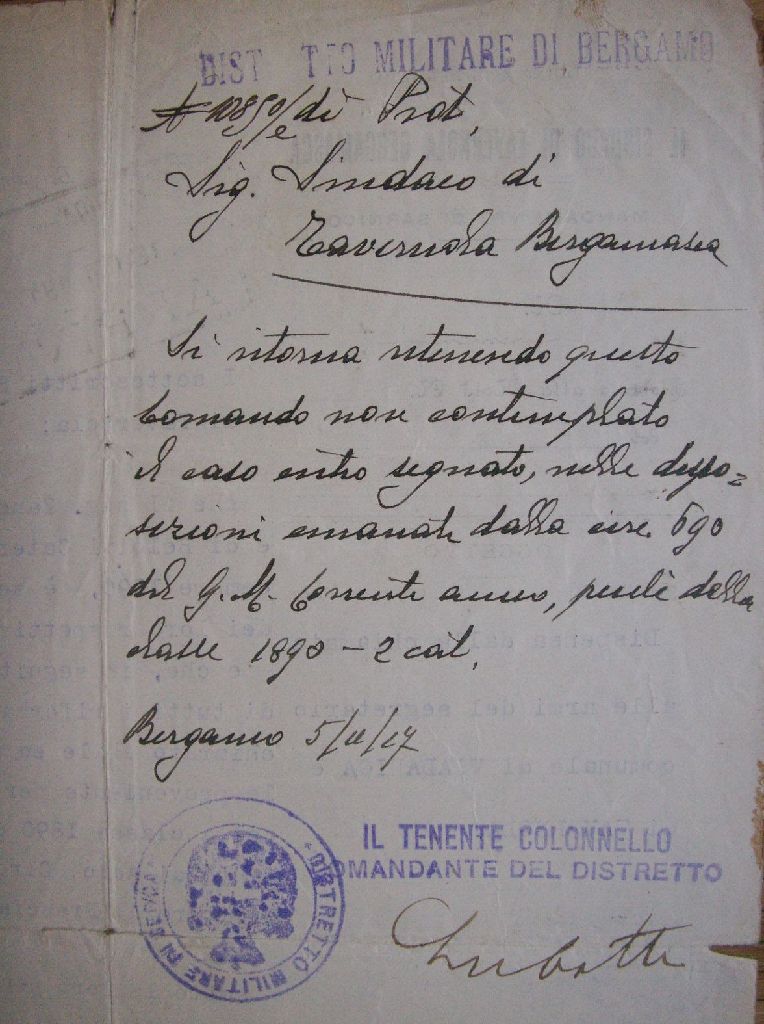 DIST TTO MILITARE DI BERGAMO
di Prot,
Sig. Sindaco di
Tavernola Bergamasca
Si ritorna ritenendo questo
Comando non contemplato
il caso entro segnato, nelle dispo=
sizioni emanate dalla circ. 690
del G. M. Corrente anno, perchè della
classe 1890 - 2 cat.
Bergamo 5/11/17
IL TENENTE COLONNELLO
COMANDANTE DEL DISTRETTO
DISTRETTO MILITARE DI BERGAMO